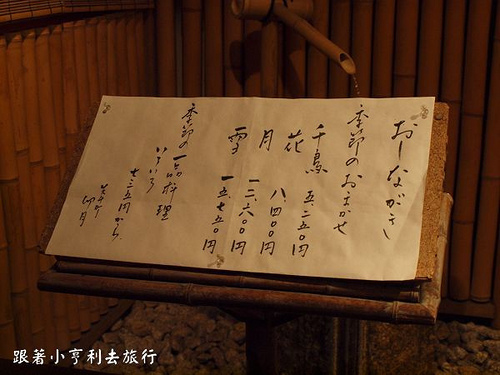 おしながき
季節のおまかせ
千鳥 五、二五〇円
花 八、四〇〇円
月 一二、六〇〇円
雪 一五、七五〇円
季節の一品料理
いろいろ
七三五円から
卯月
跟著小亨利去旅行